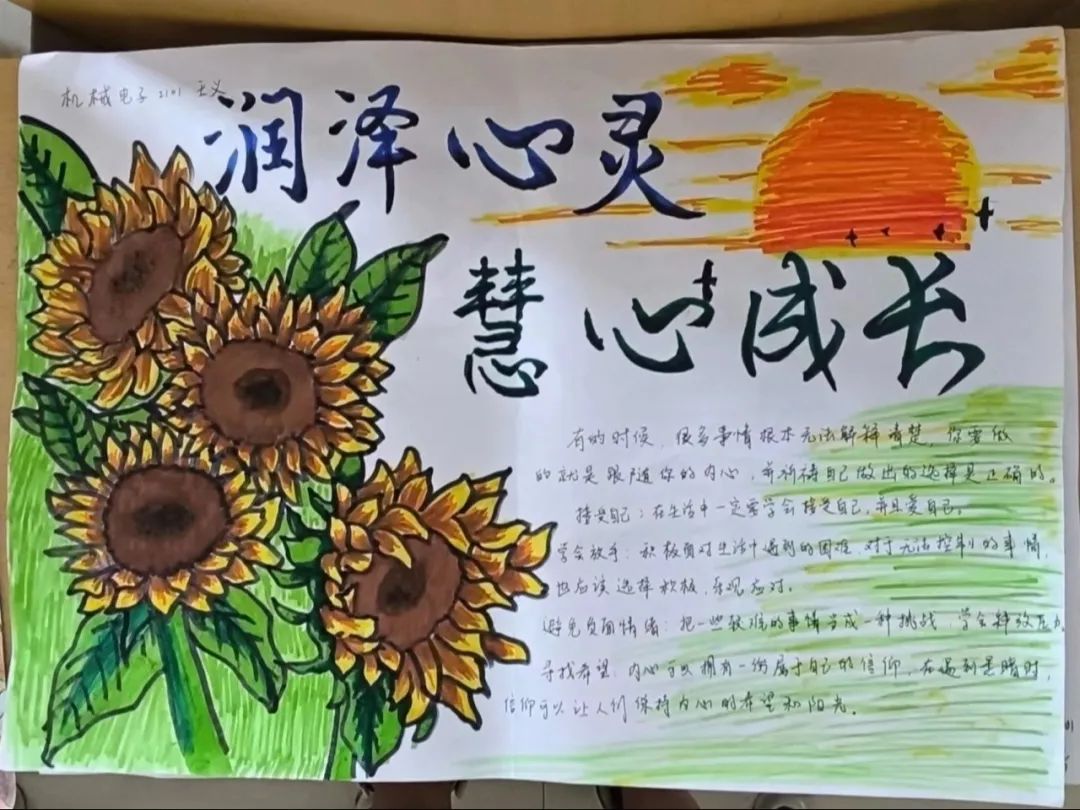 机械电子2101 王义
润泽心灵
慧心成长
有的时候，很多事情根本无法解释清楚，你要做
的就是跟随你的内心，并祈祷自己做出的选择是正确的。
接受自己：在生活中一定要学会接受自己，并且爱自己。
学会放手：积极面对生活中遇到的困难，对于无法控制的事情，
也应该选择积极，乐观应对。
避免负面情绪：把一些较难的事情当成一种挑战，学会释放压力
寻找希望：内心可以拥有一份属于自己的信仰，在遇到是晴时，
信仰可以让人们保持内心的希望和阳光。